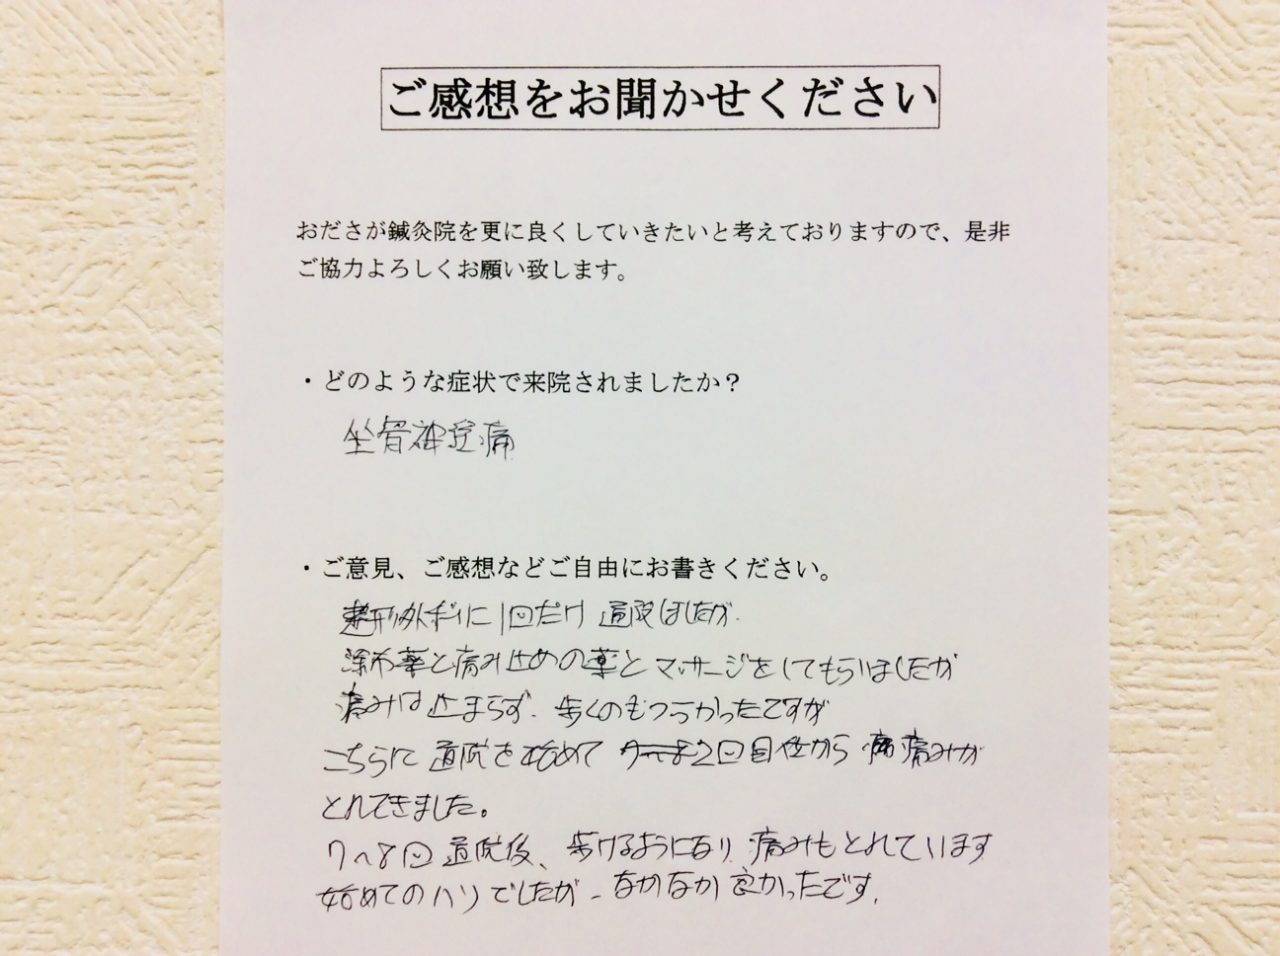 ご感想をお聞かせください
おださが鍼灸院を更に良くしていきたいと考えておりますので、是非
ご協力よろしくお願い致します。
・どのような症状で来院されましたか？
坐骨神経痛
・ご意見、ご感想などご自由にお書きください。
整形外科に1回だけ通院しましたが
湿布薬と痛み止めの薬とマッサージをしてもらいましたが
痛みは止まらず、歩くのもつらかったですが
こちらに通院を始めて 2回目位から 痛みが
とれてきました。
7~8回通院後、歩けるようになり 痛みもとれています
始めてのハリでしたが、なかなか良かったです。